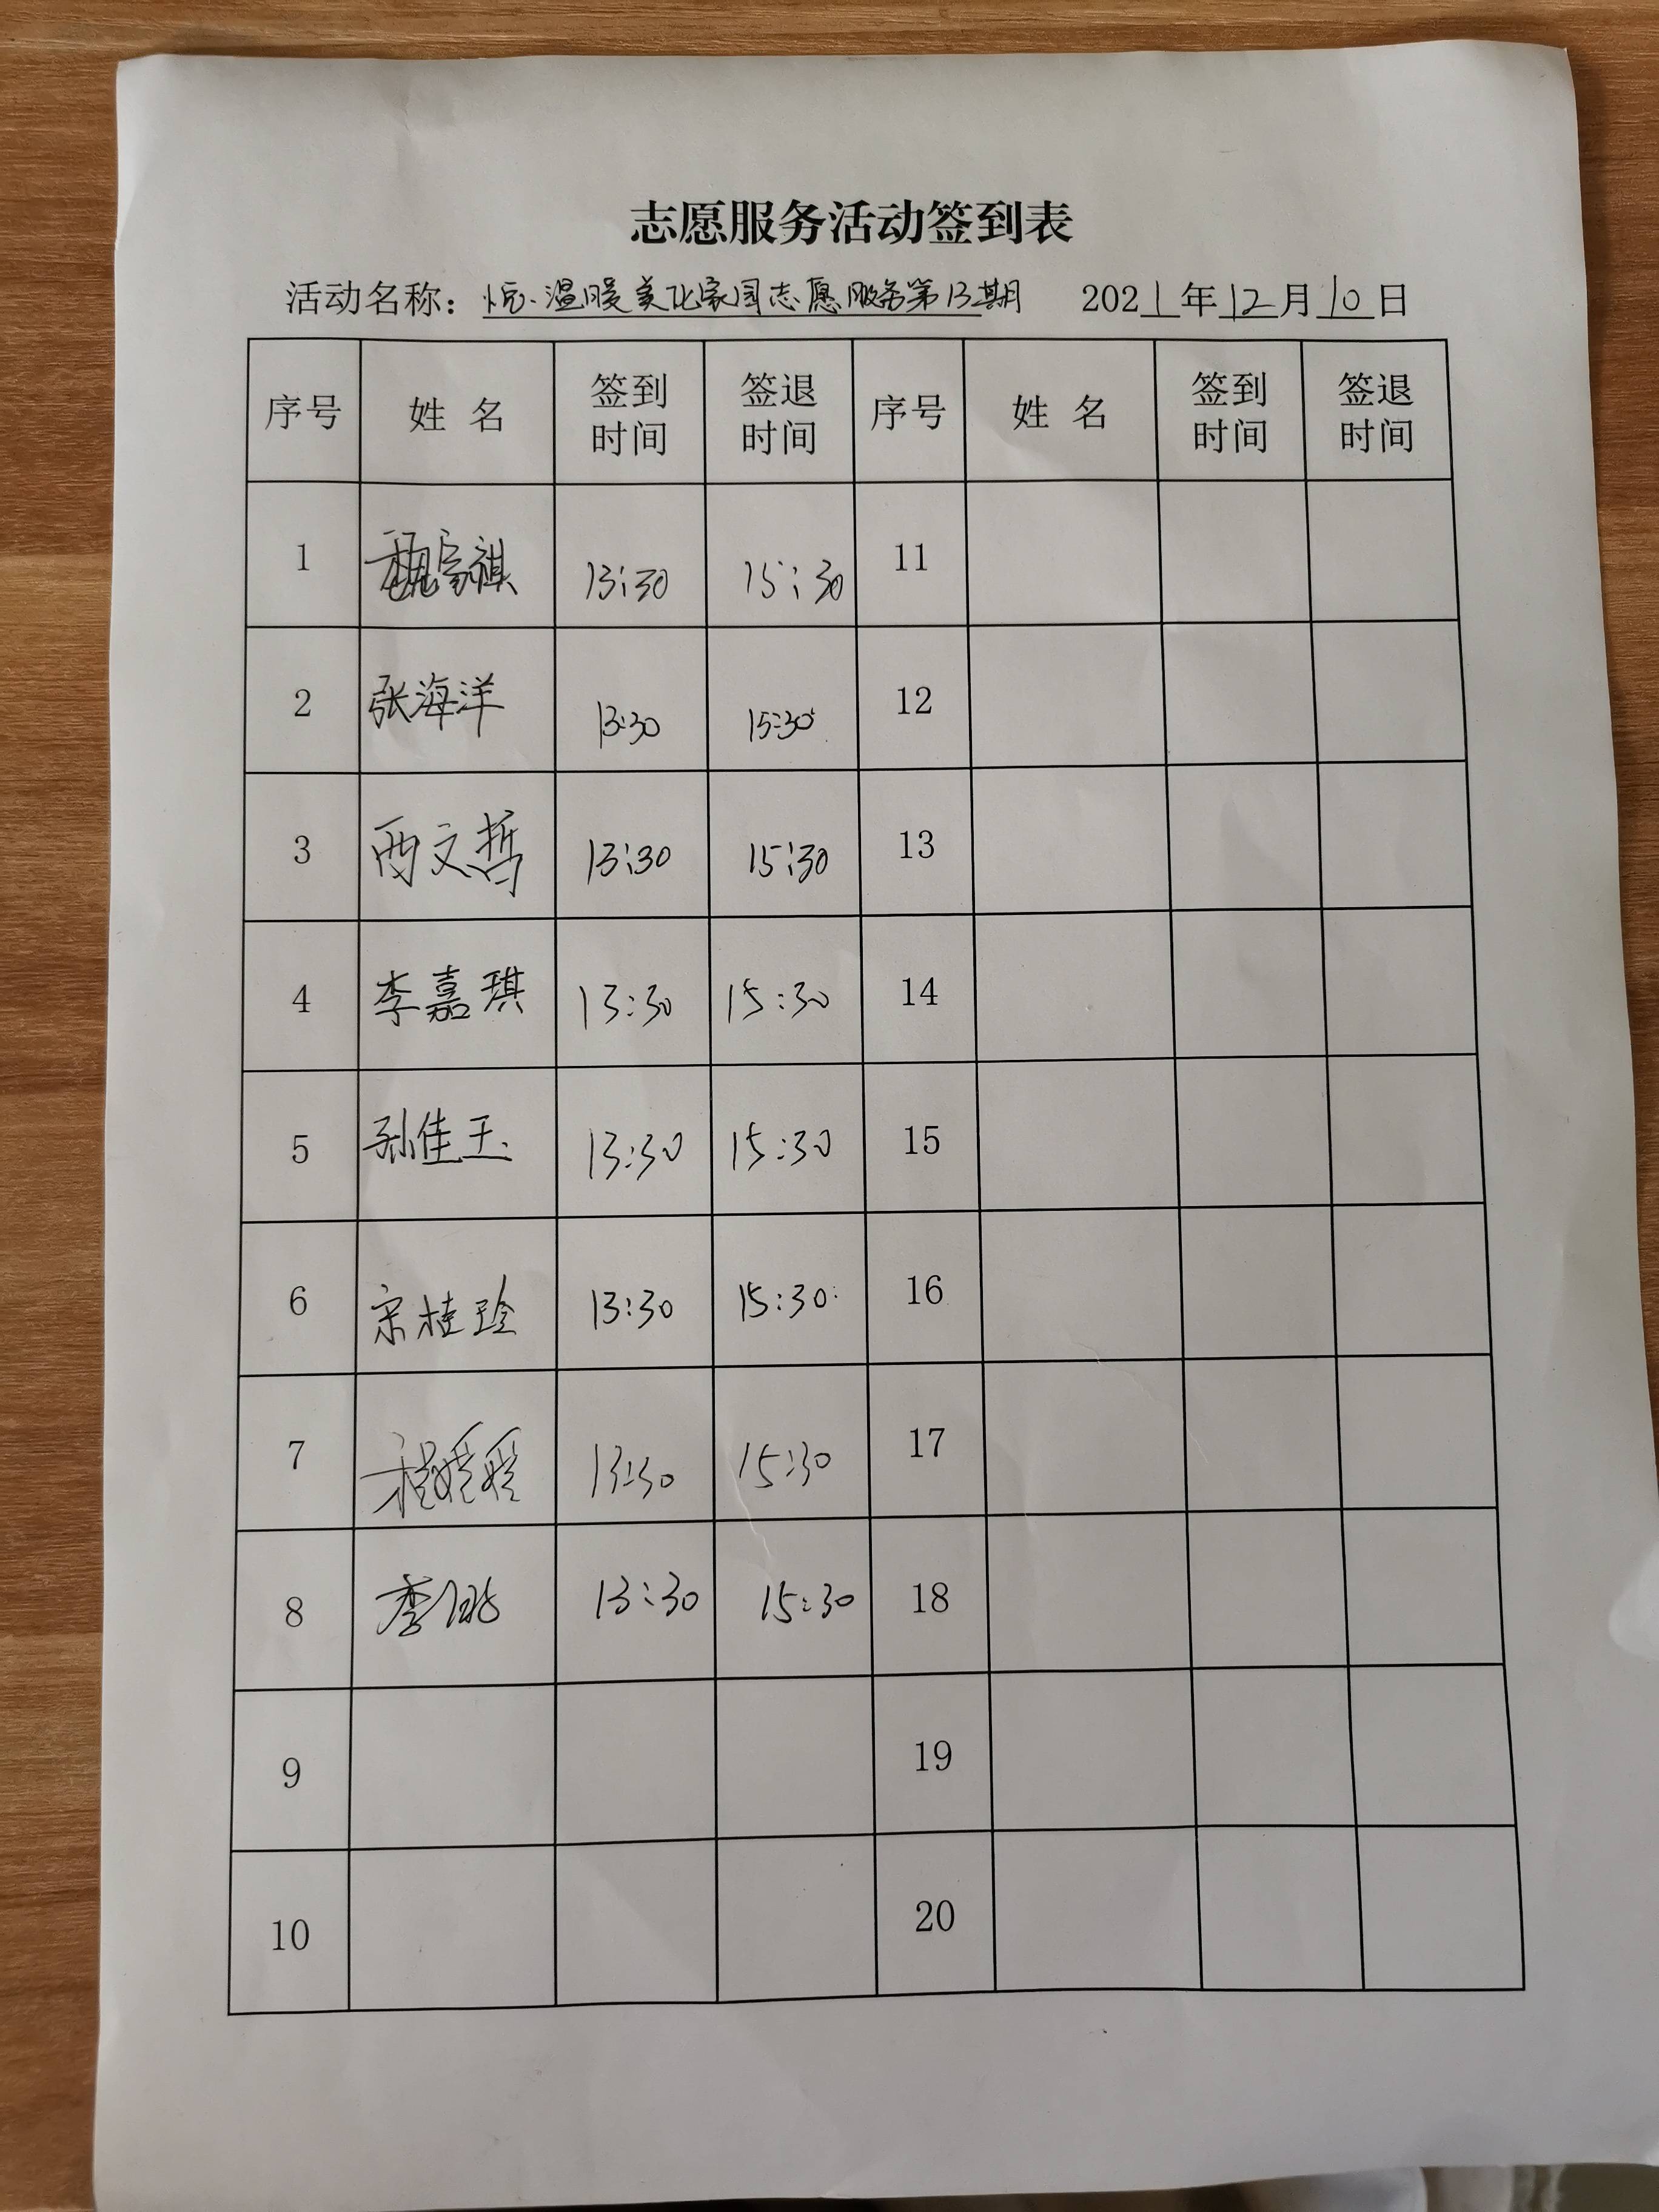 志愿服务活动签到表
活动名称：恒·温暖美化家园志愿服务第13期 2021年12月10日
序号 姓名 签到时间 签退时间 序号 姓名 签到时间 签退时间
1 魏家祺 13:30 15:30 11
2 张海洋 13:30 15:30 12
3 西文哲 13:30 15:30 13
4 李嘉琪 13:30 15:30 14
5 孙佳玉 13:30 15:30 15
6 宋桂玲 13:30 15:30 16
7 程媛媛 13:30 15:30 17
8 李 13:30 15:30 18
9 19
10 20